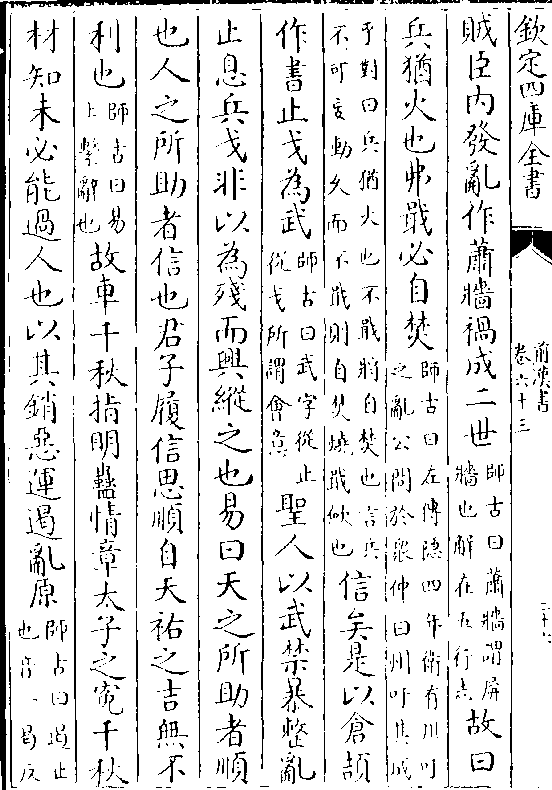 欽定四庫全書
前漢書
卷六十三
賊臣内發亂作蕭牆禍成二世師古曰蕭牆謂屏牆也解在五行志故曰
兵猶火也弗戢必自焚師古曰左傳隠四年衛有州吁之亂公問於衆仲曰州吁其成
乎對曰兵猶火也不戢將自焚也言兵不可妄動久而不戢則自焚燒戢歛也信矣是以倉頡
作書止戈為武師古曰武字從止從戈所謂會意聖人以武禁暴整亂
止息兵戈非以為殘而興縱之也易曰天之所助者順
也人之所助者信也君子履信思順自天祐之吉無不
利也師古曰易上繫辭也故車千秋指明蠱情章太子之寃千秋
材知未必能過人也以其銷惡運遏亂原師古曰遏止也音一曷反